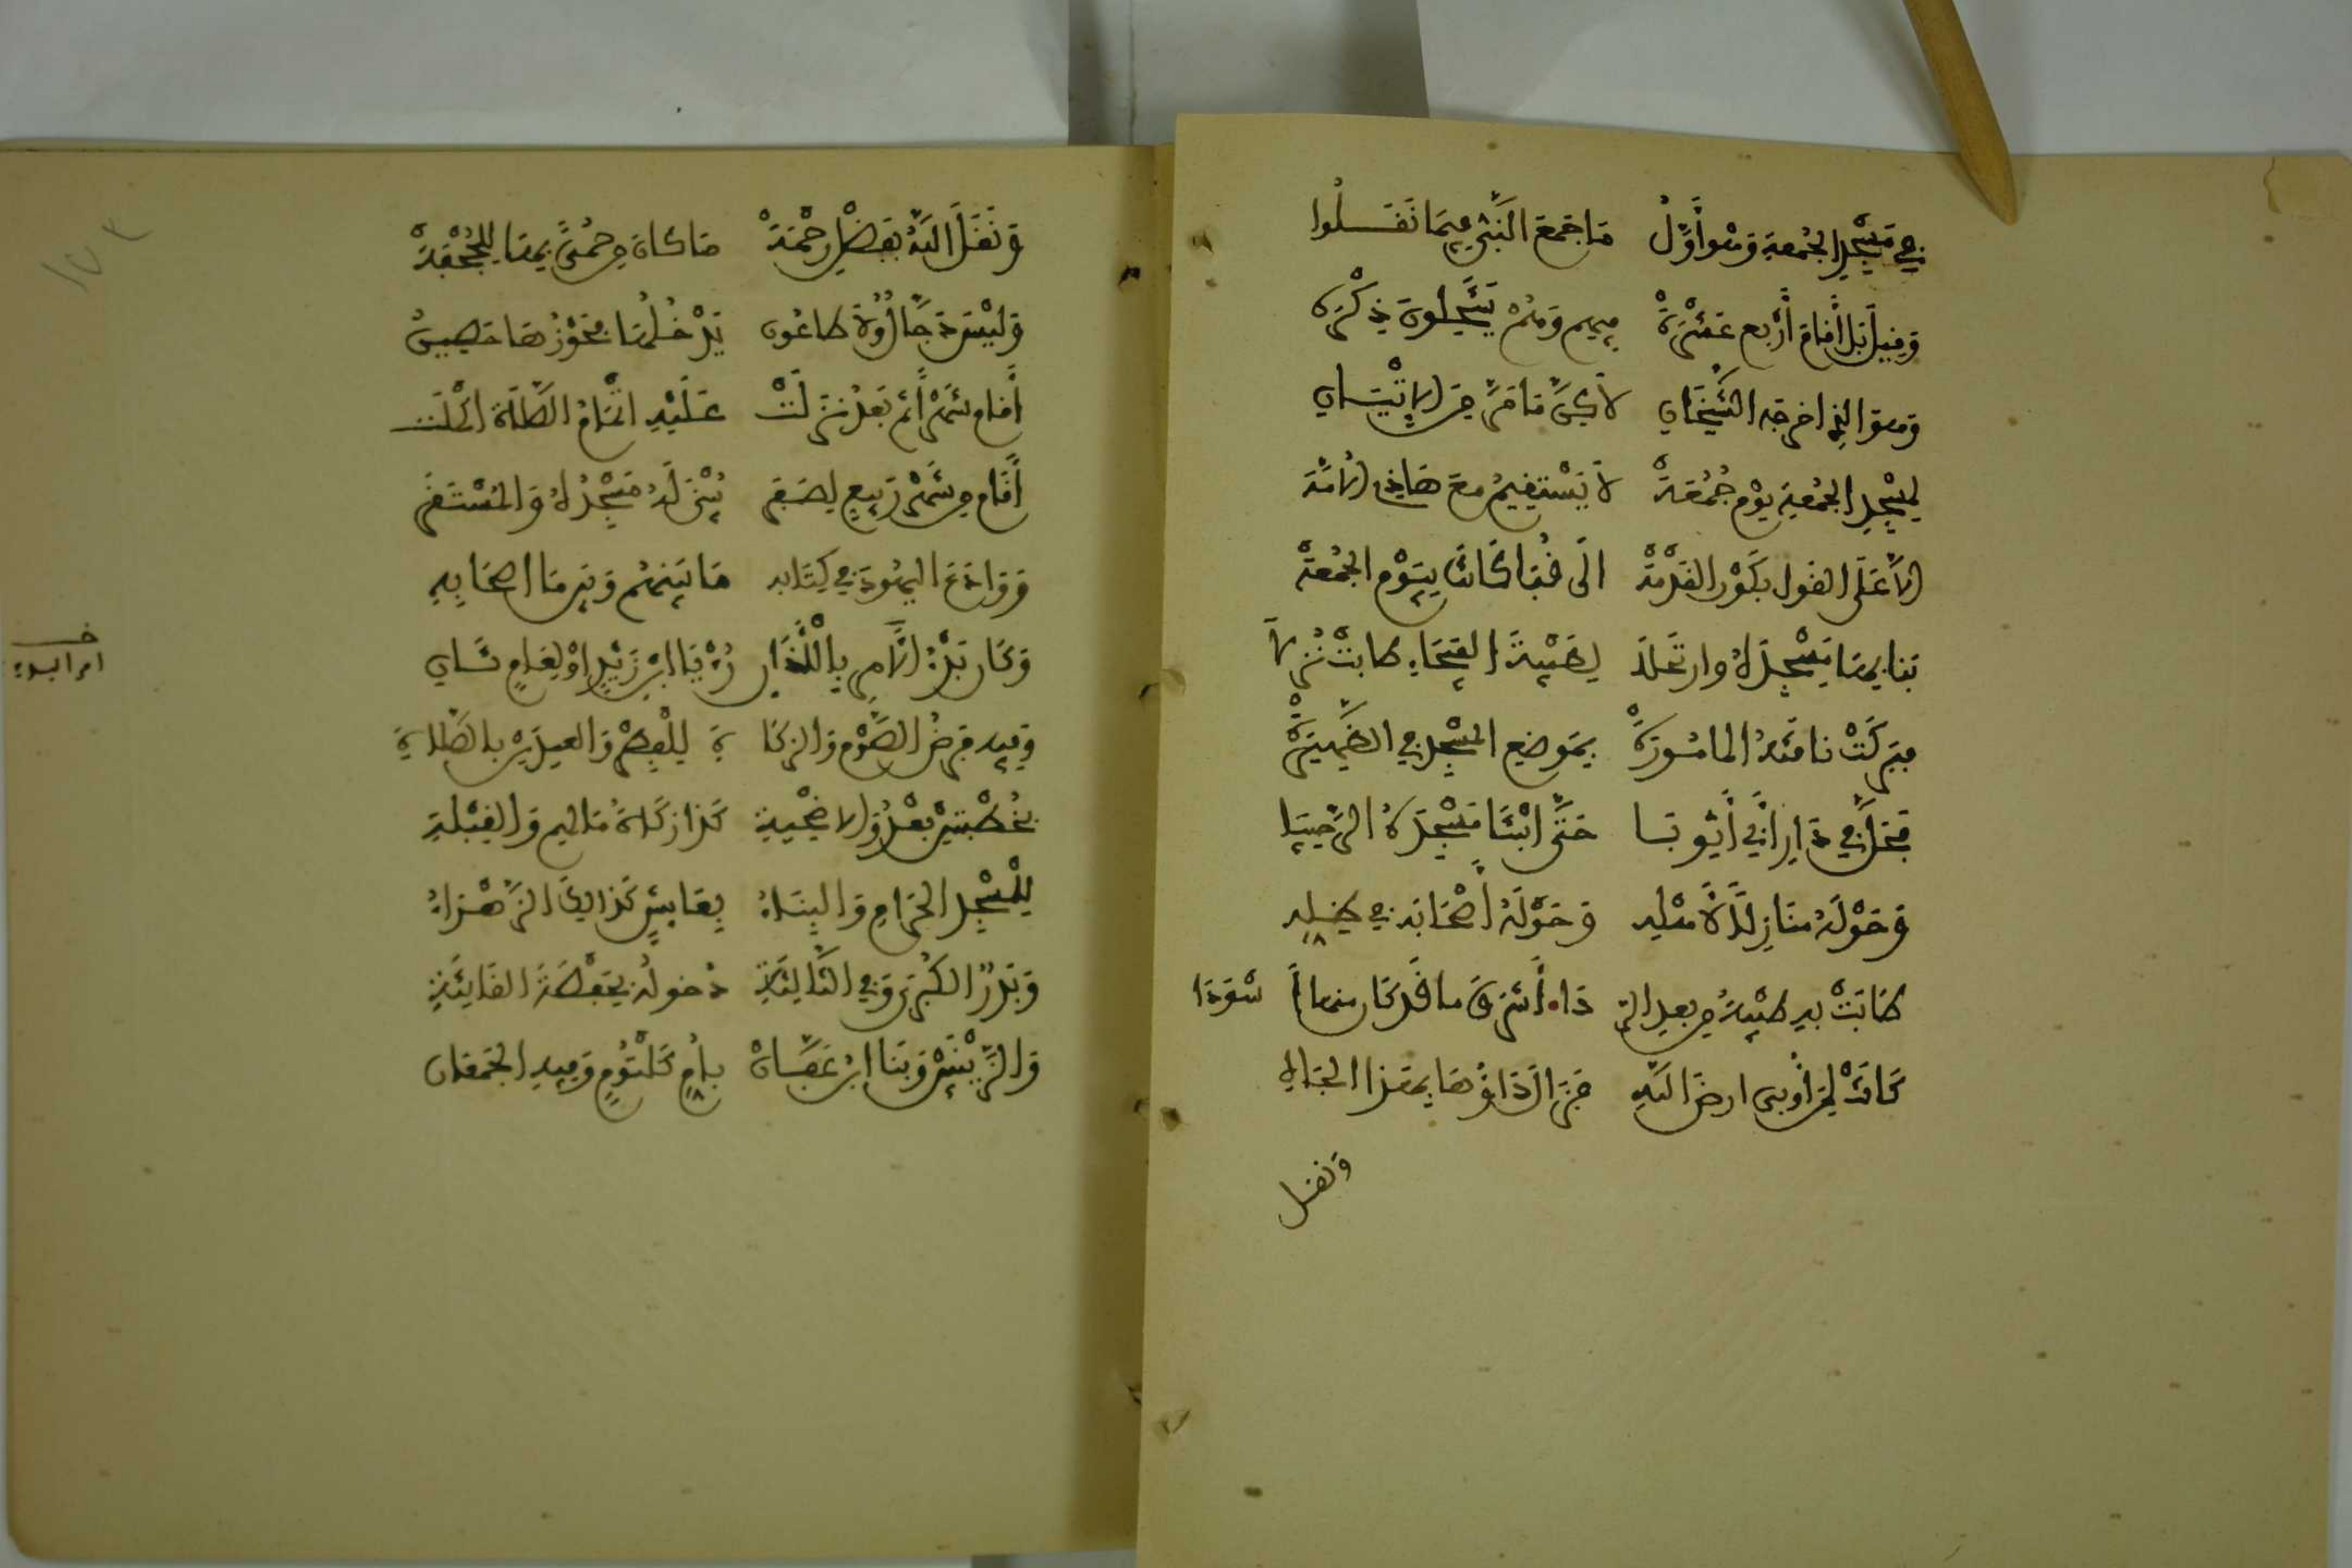 في مسجد الجمعة وهو أول ما جمع النبي فيما نقلوا
وقيل بل أقام أربع عشرة فيهم وهم ينتحلون ذكره
وهو الذي اخرجه الشيخان لاكن ما مر من الإتيان
لمسجد الجمعة يوم جمعة لا يستقيم مع هاذي المدة
إلا على القول بكون القدمة الى قبا كانت بيوم الجمعة
بنا بها مسجده وارتحلا لطيبة الفيحاء طابت نزلا
فبركت ناقته المامورة بموضع المسجد في الظهيرة
فحل في دار أبي أيوبا حتى ابتنا مسجده الرحيبا
وحوله منازلا لأهله وحوله أصحابه في ظله
طابت به طيبة من بعد الردا أشرق ما قد كان منها أسودا
كانت لمن أوبى ارض الله فزال داؤها بهذا الجاه
ونقل
ونقل الله بفضل رحمة ما كان من حمى بها للجحفة
وليس دجال ولا طاعون يدخلها فحرزها حصين
أقام شهرا ثم بعد نزلت عليه اتمام الصلاة اكملت
أقام من شهر ربيع لصفر يبنى له مسجده والمستقر
ووادع اليهود في كتابه ما بينهم وبين ما اصحابه
وكان بدء الأمر بالأذان رؤيا ابن زيد او لعام ثان
وفيه فرض الصوم والزكا ة للفطر والعيدين بالصلاة
بخطبتين بعد والاضحية كذا زكاة مالهم والقبلة
للمسجد الحرام والبناء بعائش كذالك الزهراء
وبدر الكبرى وفي الثالثة دخوله بحفصة القانتة
والزينبين وبنا ابن عفان بام كلثوم وفيه الجمعان